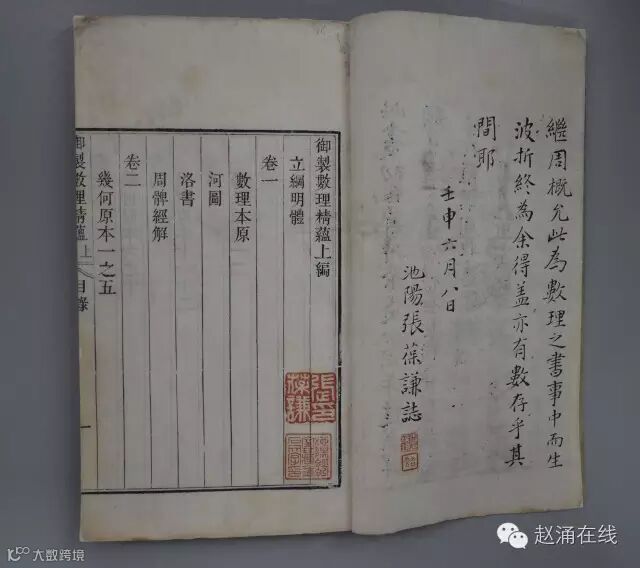 繼周概允此為數理之書事中而生
波折終為余得盖亦有數存乎其
間耶
壬申六月八日
池陽張葆謙誌
御製數理精蘊上編
立綱明體
卷一
數理本原
河圖
洛書
周髀經解
卷二
幾何原本一之五
御製數理精蘊上
目錄
一
張氏葆謙
赵涌在线
10100 大数跨境